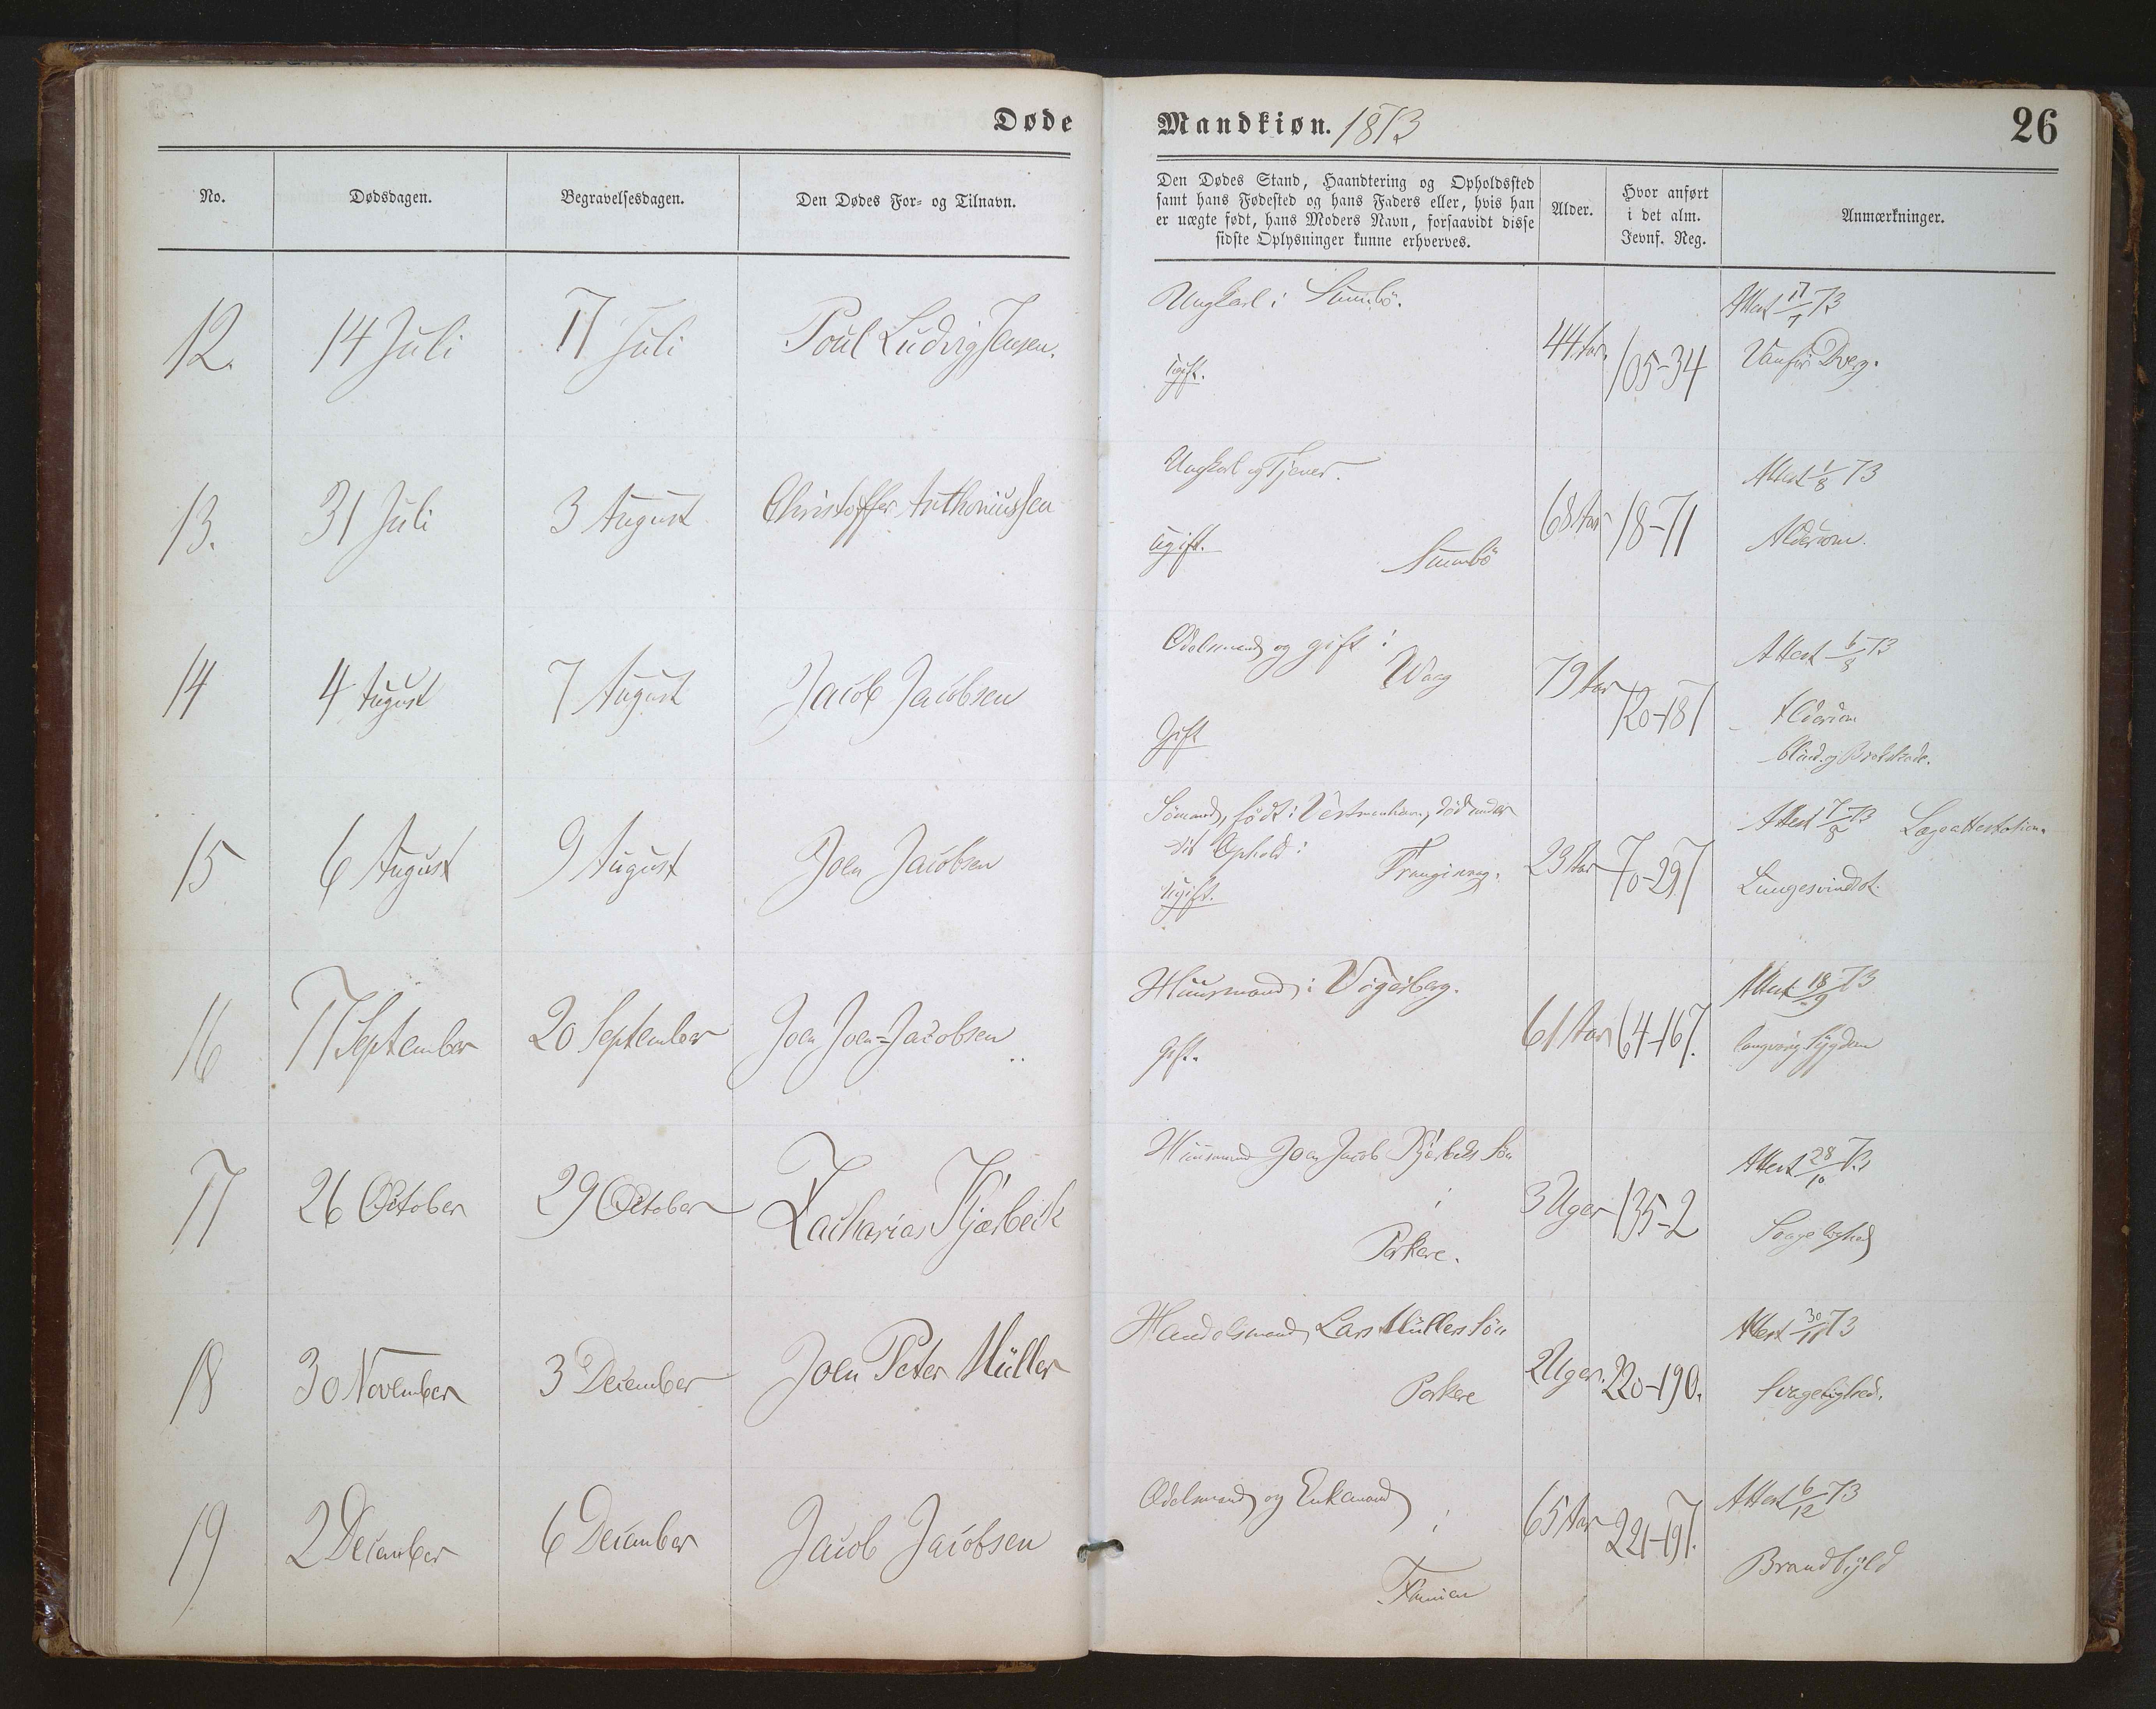 Døde
Mandkiøn. 1873
26
No.
Dødsdagen.
Begravelsesdagen.
Den Dødes For- og Tilnavn.
Den Dødes Stand, Haandtering og Opholdssted
samt hans Fødested og hans Faders eller, hvis han
er uægte født, hans Moders Navn, forsaavidt disse
sidste Oplysninger kunne erhverves.
Alder.
Hvor anført
i det alm.
Jevnf. Reg.
Anmærkninger.
12.
14 Juli
17 Juli
Poul Ludvig Jensen.
Ungkarl i Sumbö.
ugift.
44 Aar.
105-34
Attest 17/7 73
Vanför Dverg.
13.
31 Juli
3 August
Christoffer Anthoniussen
Ungkarl og Tjener.
ugift.
Sumbö
68 Aar
18-71
Attest 1/8 73
Alderdom.
14
4 August
7 August
Jacob Jacobsen
Odelsmand og gift i
Waag
Gift
79 Aar
120-187
Attest 6/8 73
Alderdom
blind og
15
6 August
9 August
Joen Jacobsen
Sömand, född i Vestmanhavn, död under
sit Ophold i
Frangisvaag.
ugift.
23 Aar
70-297
Attest 7/8 73 Lægeattestation.
Lungesvindsot.
16
17 September
20 September
Joen Joen=Jacobsen
Huusmand i Vogsberg.
Gift.
61 Aar
64-167.
Attest 18/9 73
langvarig Sygdom
17
26 October
29 October
Zacharias Kjærbeck
Huusmand Joen Jacob Kjærbecks Sön
i
Porkere.
3 Uger
135-2
Attest 28/10 73
Svagelighed
18
30 November
3 December
Joen Peter Müller
Handelsmand Lars Müllers Sön
Porkere
2 Uger.
220-190.
Attest 30/11 73
Svagelighed.
19
2 December
6 December
Jacob Jacobsen
Odelsmand og Enkemand
i
Famien
65 Aar
221-197.
Attest 6/12 73
Brandbyld